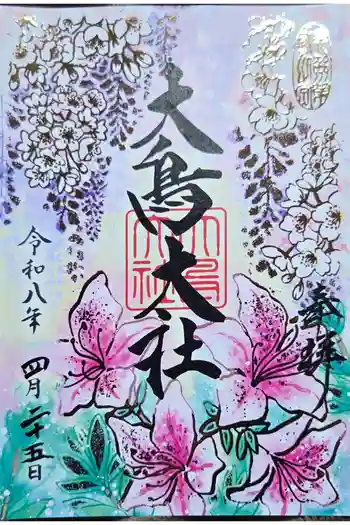 奉拝
大鳥大社
大鳥
大社
令和八年
四月二十五日